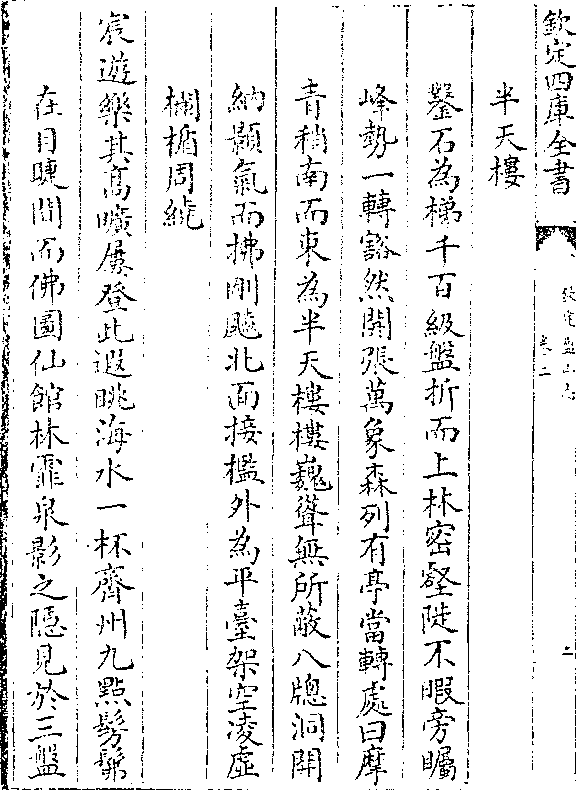 欽定四庫全書
欽定盤山志
卷二
二
半天樓
鑿石為梯千百級盤折而上林密壑陡不暇旁矚
峰勢一轉豁然開張萬象森列有亭當轉處曰摩
青稍南而東為半天樓樓巍聳無所蔽八牕洞開
納顥氣而拂剛飈北面接檻外為平臺架空凌虛
欄楯周繞
宸遊樂其高曠屢登此遐眺海水一杯齊州九點髣髴
在目睫間而佛圖仙館林霏泉影之隱見於三盤